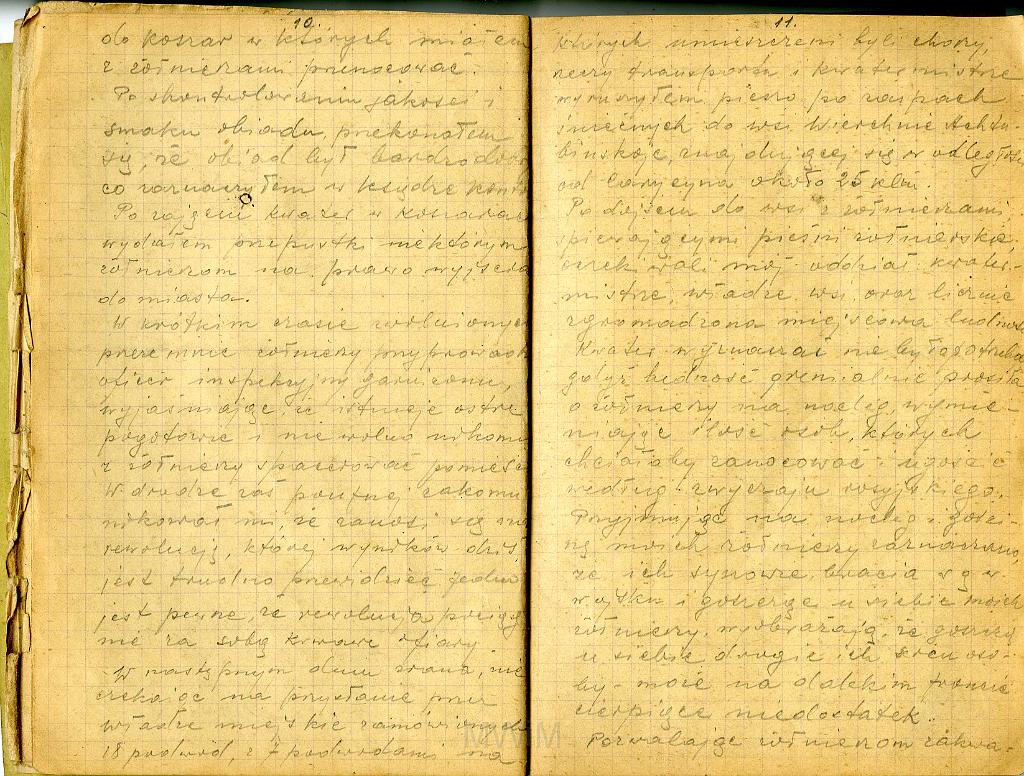 10.
do koszar w których miałem
z żołnierzami przenocować.
Po skontrolowaniu jakości i
smaku obiadu, przekonałem
się, że obiad był bardzo dobr
co zaznaczyłem w książce kont
Po zajęciu kwater w koszarach
wydałem przepustki niektórym
żołnierzom na prawo wyjścia
do miasta.
W krótkim czasie zwolnionych
przezemnie żołnierzy przyprowadz
oficer inspekcyjny garnizonu,
wyjaśniając, iż istnieje ostre
pogotowie i nie wolno nikomu
z żołnierzy spacerować po mieści
W drodze zaś poufnej zakomu
nikował mi, że zanosi się na
rewolucję, której wyników dziś
jest trudno przewidzieć jedno
jest pewne, że rewolucja pociąg
nie za sobą krwawe ofiary.
W następnym dniu zrana, nie
czekając na przysłanie przez
władze miejskie zamówionych
18 podwód, z 7 podwodami na
11.
których umieszczeni byli chorzy,
rzeczy transportu i kwatermistrz
wyruszyłem pieszo po zaspach
śnieżnych do wsi Wierchnie Achtu-
binskoje, znajdującej się w odległości
od Carycyna około 25 klm.
Po dojściu do wsi z żołnierzami
śpiewającymi pieśni żołnierskie,
oczekiwali mój oddział kwater-
mistrz, władze wsi, oraz licznie
zgromadzona miejscowa ludność
Kwater wyznaczać nie było potrzeba
gdyż ludność gremialnie prosiła
o żołnierzy na nocleg, wymie-
niając ilość osób, których
chciałaby zanocować i ugościć
według zwyczaju rosyjskiego.
Przyjmując na nocleg i gości-
nę moich żołnierzy zaznaczano,
że ich synowie, bracia są w
wojsku i goszcząc u siebie moich
żołnierzy, wyobrażają, że goszczą
u siebie drogie ich sercu oso-
by - może na dalekim froncie
cierpiące niedostatek.
Pozwalając żołnierzom zakwa-